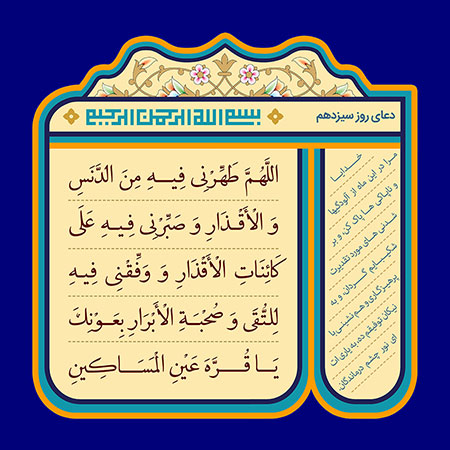 دعای روز سیزدهم
بسم الله الرحمن الرحیم
اللَّهُمَّ طَهِّرْنِی فِیهِ مِنَ الدَّنَسِ
وَ الْأَقْذَارِ وَ صَبِّرْنِی فِیهِ عَلَی
كَائِنَاتِ الْأَقْدَارِ وَ وَفِّقْنِی فِیهِ
لِلتُّقَی وَ صُحْبَةِ الْأَبْرَارِ بِعَوْنِكَ
یَا قُرَّةَ عَیْنِ الْمَسَاكِینِ
خدایا
مرا در این ماه از آلودگیها
و ناپاکی ها پاک کن، و بر
شدنی های مورد تقدیرت
شکیبایم گردان، و به
پرهیزکاری و هم نشینی با
نیکان توفیقم ده، به یاری ات
ای نور چشم درماندگان.